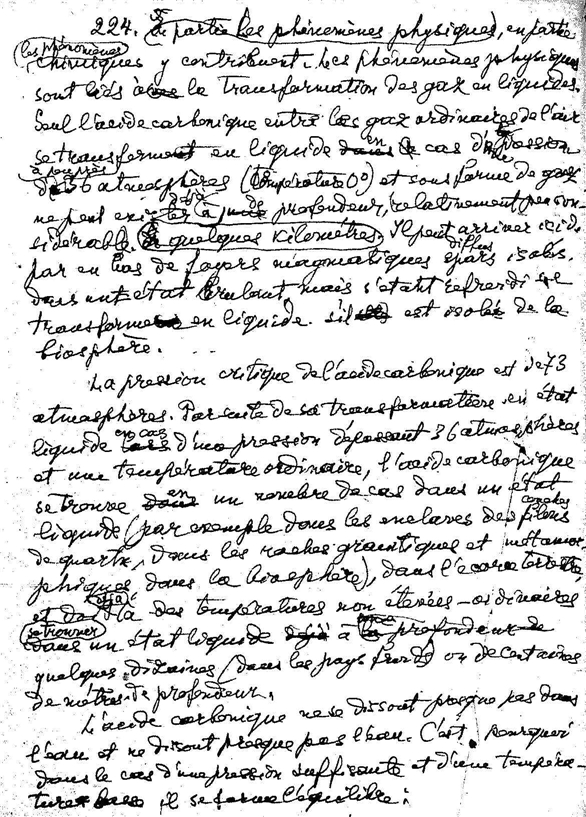 224. En partie les phénomènes physiques, en partie
les phénomènes
chimiques y contribuent. Les phénomènes physiques
sont liés à la transformation des gaz en liquides.
Seul l'acide carbonique entre les gaz ordinaires de l'air
se transforme en liquide en cas de pression
à peu près
de 36 atmosphères (température 0°) et sous forme de gaz
ne peut exister déjà à profondeur, relativement peu con-
sidérable, à quelques kilomètres. Il peut arriver ici
par en bas de foyers magmatiques épars isolés.
dans un état brulant, mais s'étant refroidi se
transforme en liquide. s'il est isolé de la
biosphère.
La pression critique de l'acide carbonique est de 73
atmosphères. Par suite de sa transformation en état
liquide en cas d'une pression dépassant 36 atmosphères
et une température ordinaire, l'acide carbonique
se trouve en un nombre de cas dans un état
liquide (par exemple dans les enclaves des couches
de quartz, dans les roches granitiques et métamor-
phiques dans la biosphère), dans l'écorce terrestre
et déjà à des températures non élevées – ordinaires
se trouver
dans un état liquide à profondeur de
quelques dizaines (dans les pays froids) ou de certaines
de mètres de profondeur.
L'acide carbonique ne se dissout presque pas dans
l'eau et ne dissout presque pas l'eau. C'est pourquoi
dans le cas d'une pression suffisante et d'une tempéra-
ture il se forme l'équilibre: